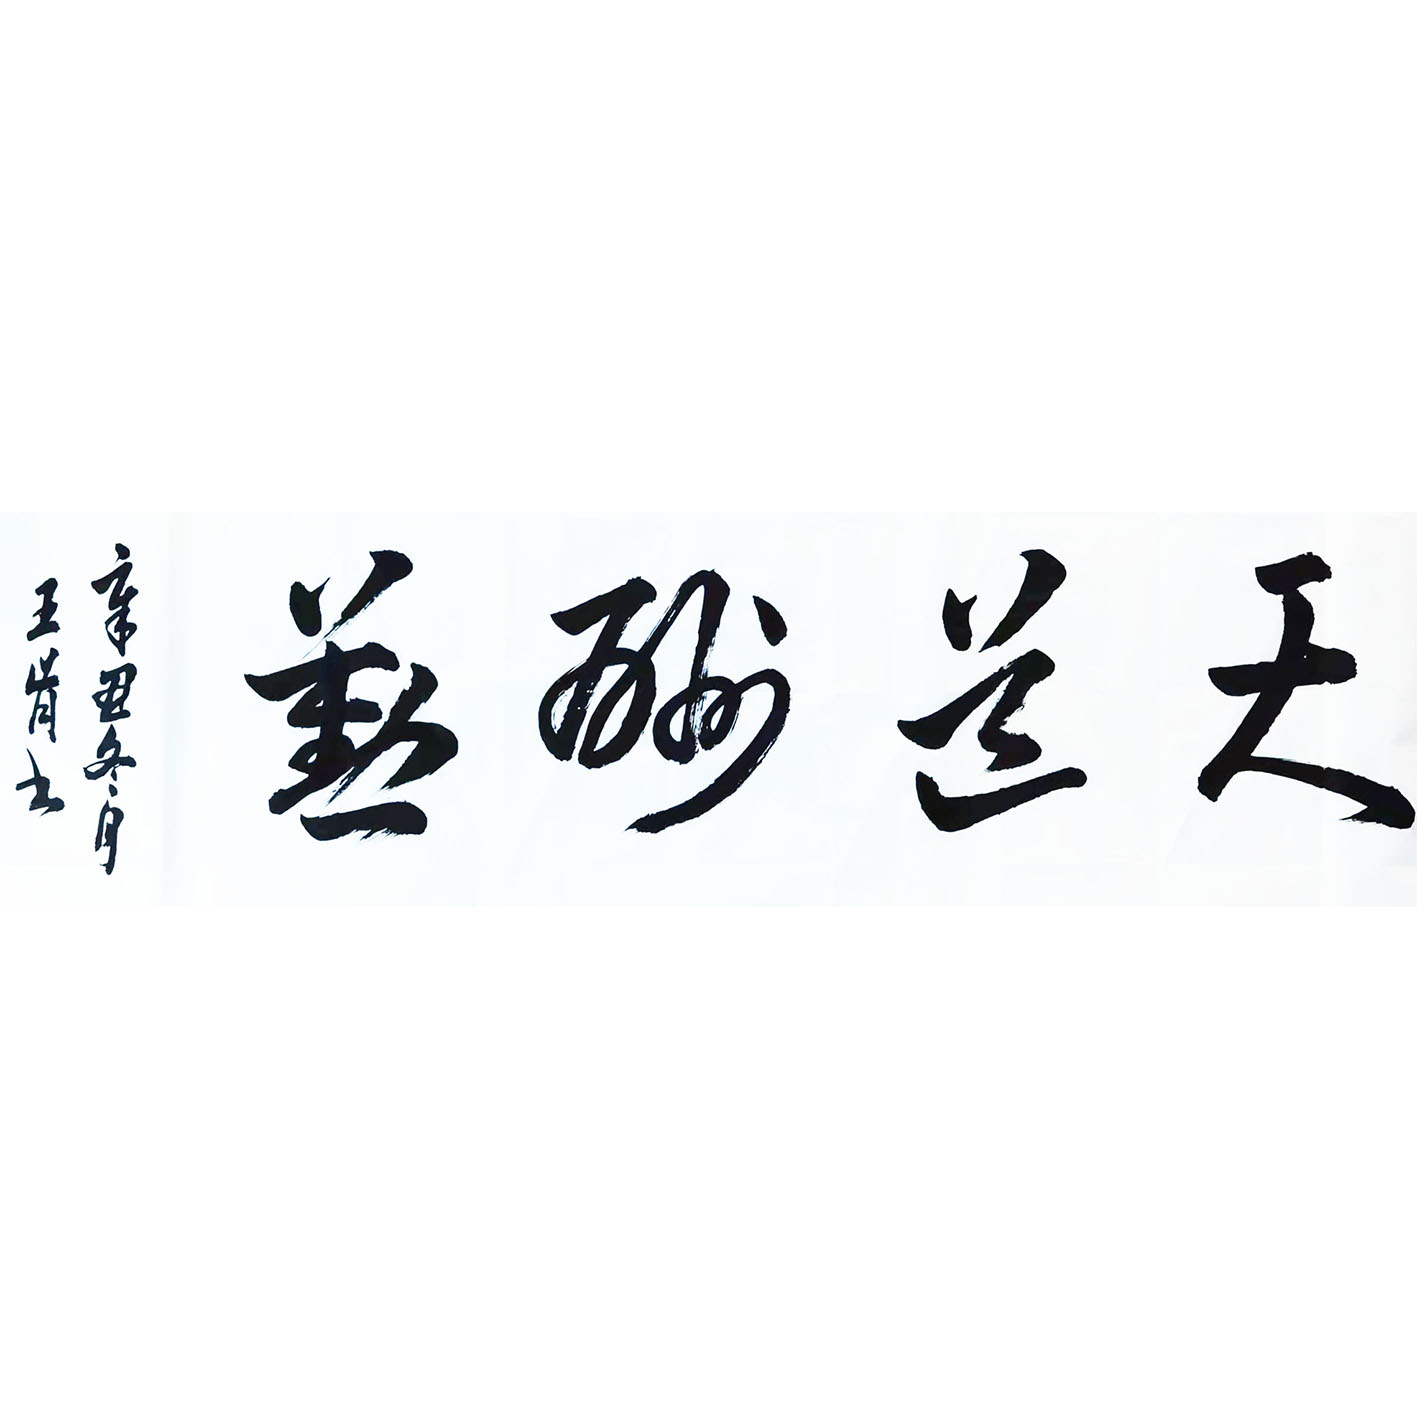 天道酬勤
辛丑冬月
王岗书